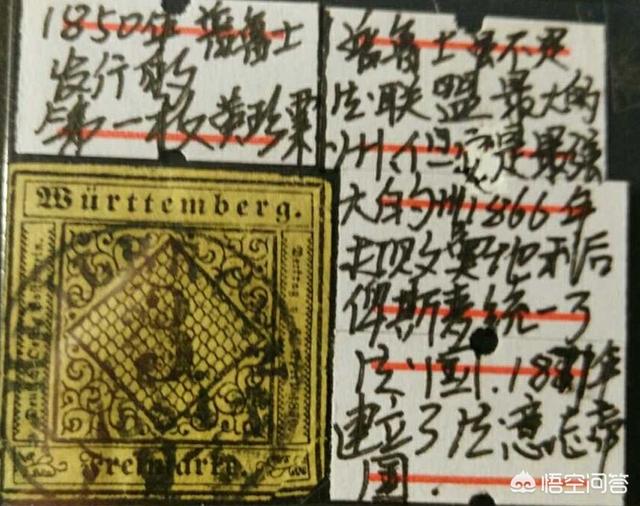 1850年普鲁士
发行的
第一枚黄珍票
普鲁士虽不是
德联盟最大的
州,但它是最强
大的州1866年
打败奥地利后
俾斯麦统一了
德国.18 年
建立了德意志帝
国.
Württemberg.
3
Freimarke.
悟空问答